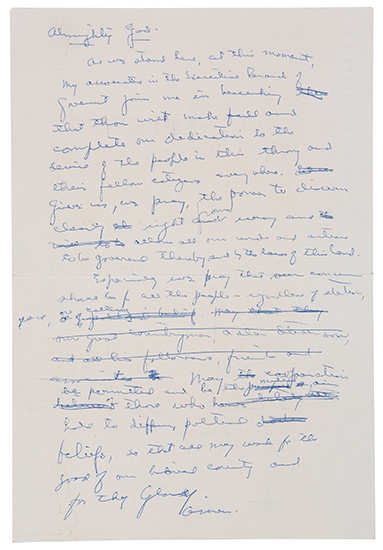 Almighty God.
As we stand here, at this moment,
my associates in the Executive Branch of
join me in beseeching
that thou wilt make full and
complete our dedication to the
service of the people in this throng and
their fellow citizens everywhere.
Give us, we pray, the power to discern
clearly right from wrong and
allow all our words and actions
to be governed thereby and by the laws of this land.
Especially we pray that our concern
shall be for all the people - regardless of station,
race, or calling may that they
our good
and all his followers, friends and
May cooperation
be permitted and be the mutual aim
those who
hold to differing political
beliefs, so that all may work for the
good of our beloved country and
for thy Glory.
Amen.